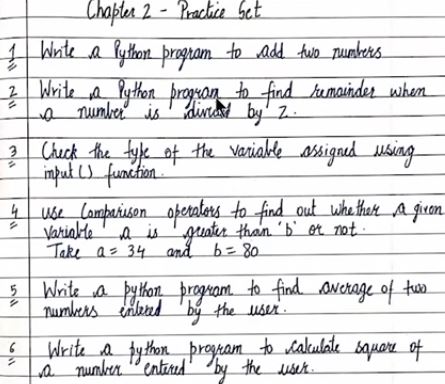 Chapter 2 - Practice Set
1 Write a Python program to add two numbers
2 Write a Python program to find remainder when
a number is divided by Z.
3 Check the type of the variable assigned using
input () function.
4 use Comparison operators to find out whether a given
variable a is greater than 'b' or not.
Take a = 34 and b = 80
5 Write a python program to find average of two
numbers entered by the user.
6 Write a python program to calculate square of
a number entered by the user.